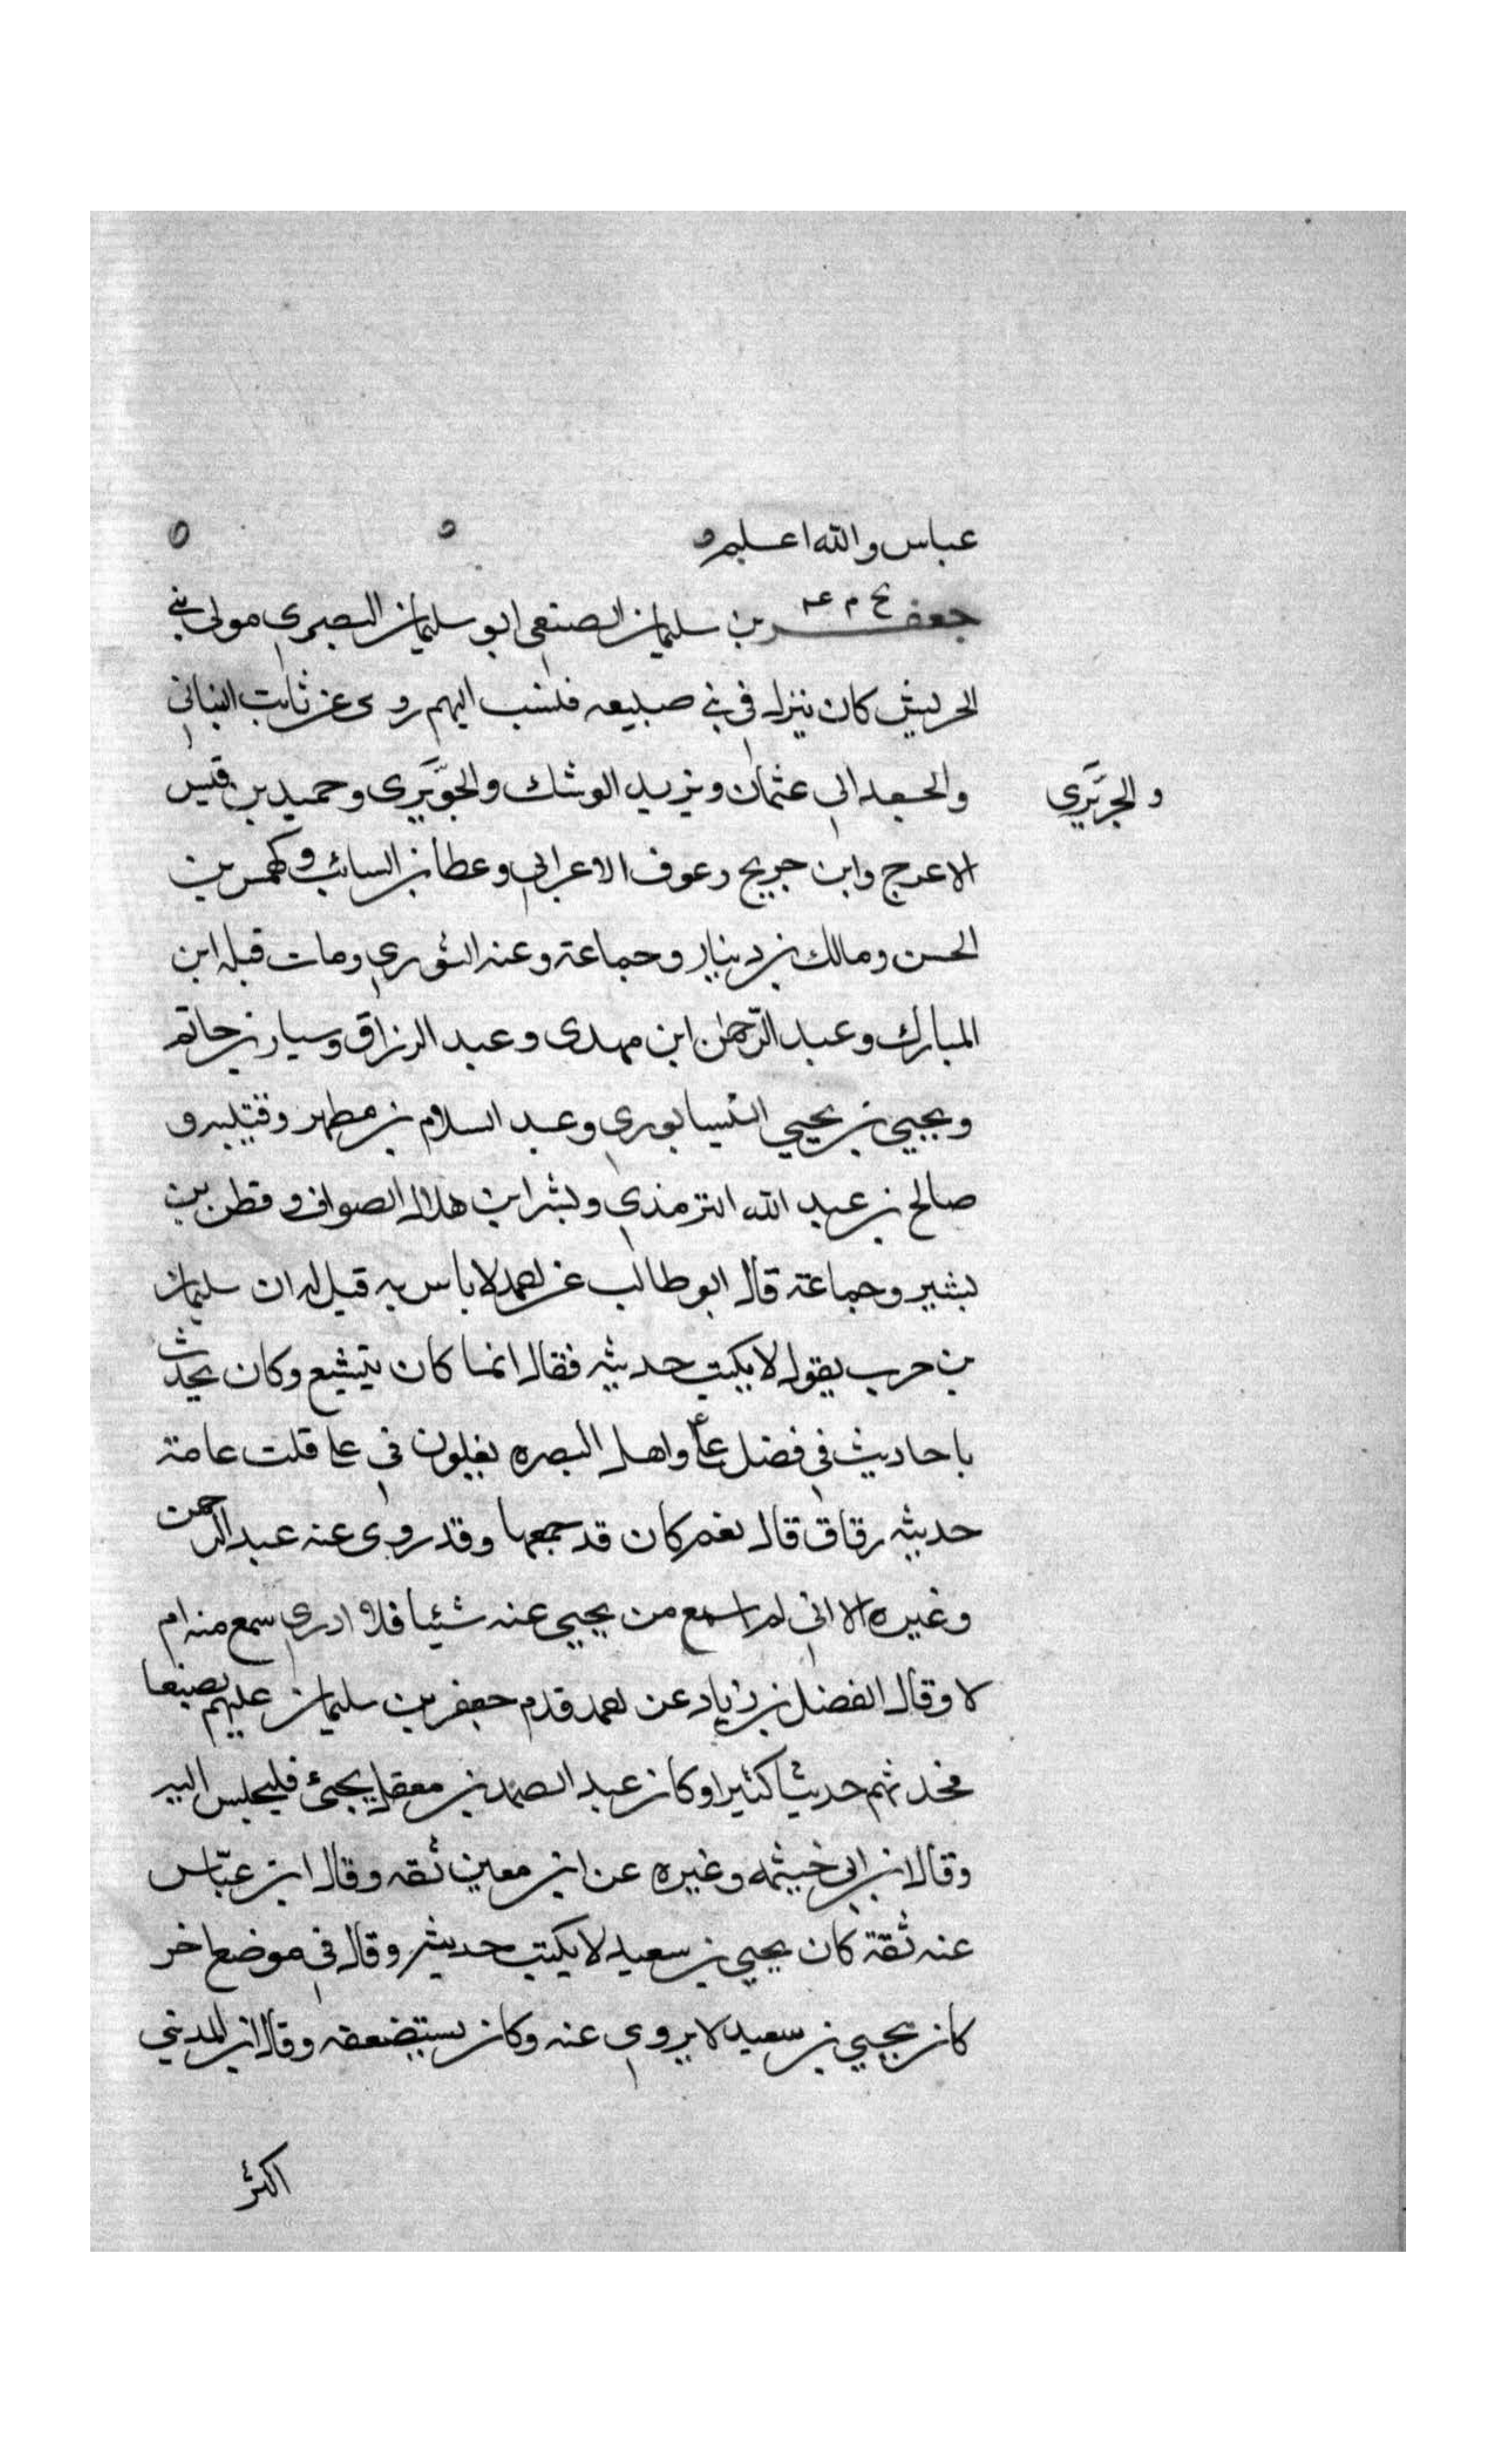 عباس والله اعلم
جعفر بن سليمان الضبعي ابو سليمان البصري مولى بني
بخ م عه
الحريش كان ينزل في بني ضبيعه فنسب اليهم روى عن ثابت البناني
والجعد ابي عثمان ويزيد الرشك والجوَيَري وحميد بن قيس
والجُرَيَري
الاعرج وابن جريج وعوف الاعرابي وعطا بن السائب وكهمس بن
الحسن ومالك بن دينار وجماعة وعنه الثوري ومات قبله ابن
المبارك وعبد الرّحمن ابن مهدى وعبد الرزاق وسيار بن حاتم
ويحيي بن يحيي النيسابوري وعبد السلام بن مطهر وقتيبه و
صالح بن عبد الله الترمذي وبشر ابن هلال الصواف وقطن بن
بشير وجماعة قال ابو طالب عن احمد لا باس به قيل له ان سليمان
بن حرب يقول لا يكتب حديثه فقال انما كان يتشيع وكان يحدث
باحاديث في فضل على واهل البصره يغلون في على قلت عامة
حديثه رقاق قال نعم كان قد جمعها وقد روى عنه عبد الرحمن
وغيره الا اني لم اسمع من يحيي عنه شيئا فلا ادري سمع منه ام
لا وقال الفضل بن زياد عن احمد قدم جعفر بن سليمان عليهم بصنعا
فحدثهم حديثا كثيرا وكان عبد الصمد بن معقل يجئ فيجلس اليه
وقال ابن ابي خيثمه وغيره عن ابن معين ثقه وقال ابن عبّاس
عنه ثقة كان يحيي بن سعيد لا يكتب حديثه وقال في موضع اخر
كان يحيي بن سعيد لا يروي عنه وكان يستضعفه وقال ابن المديني
اكثر